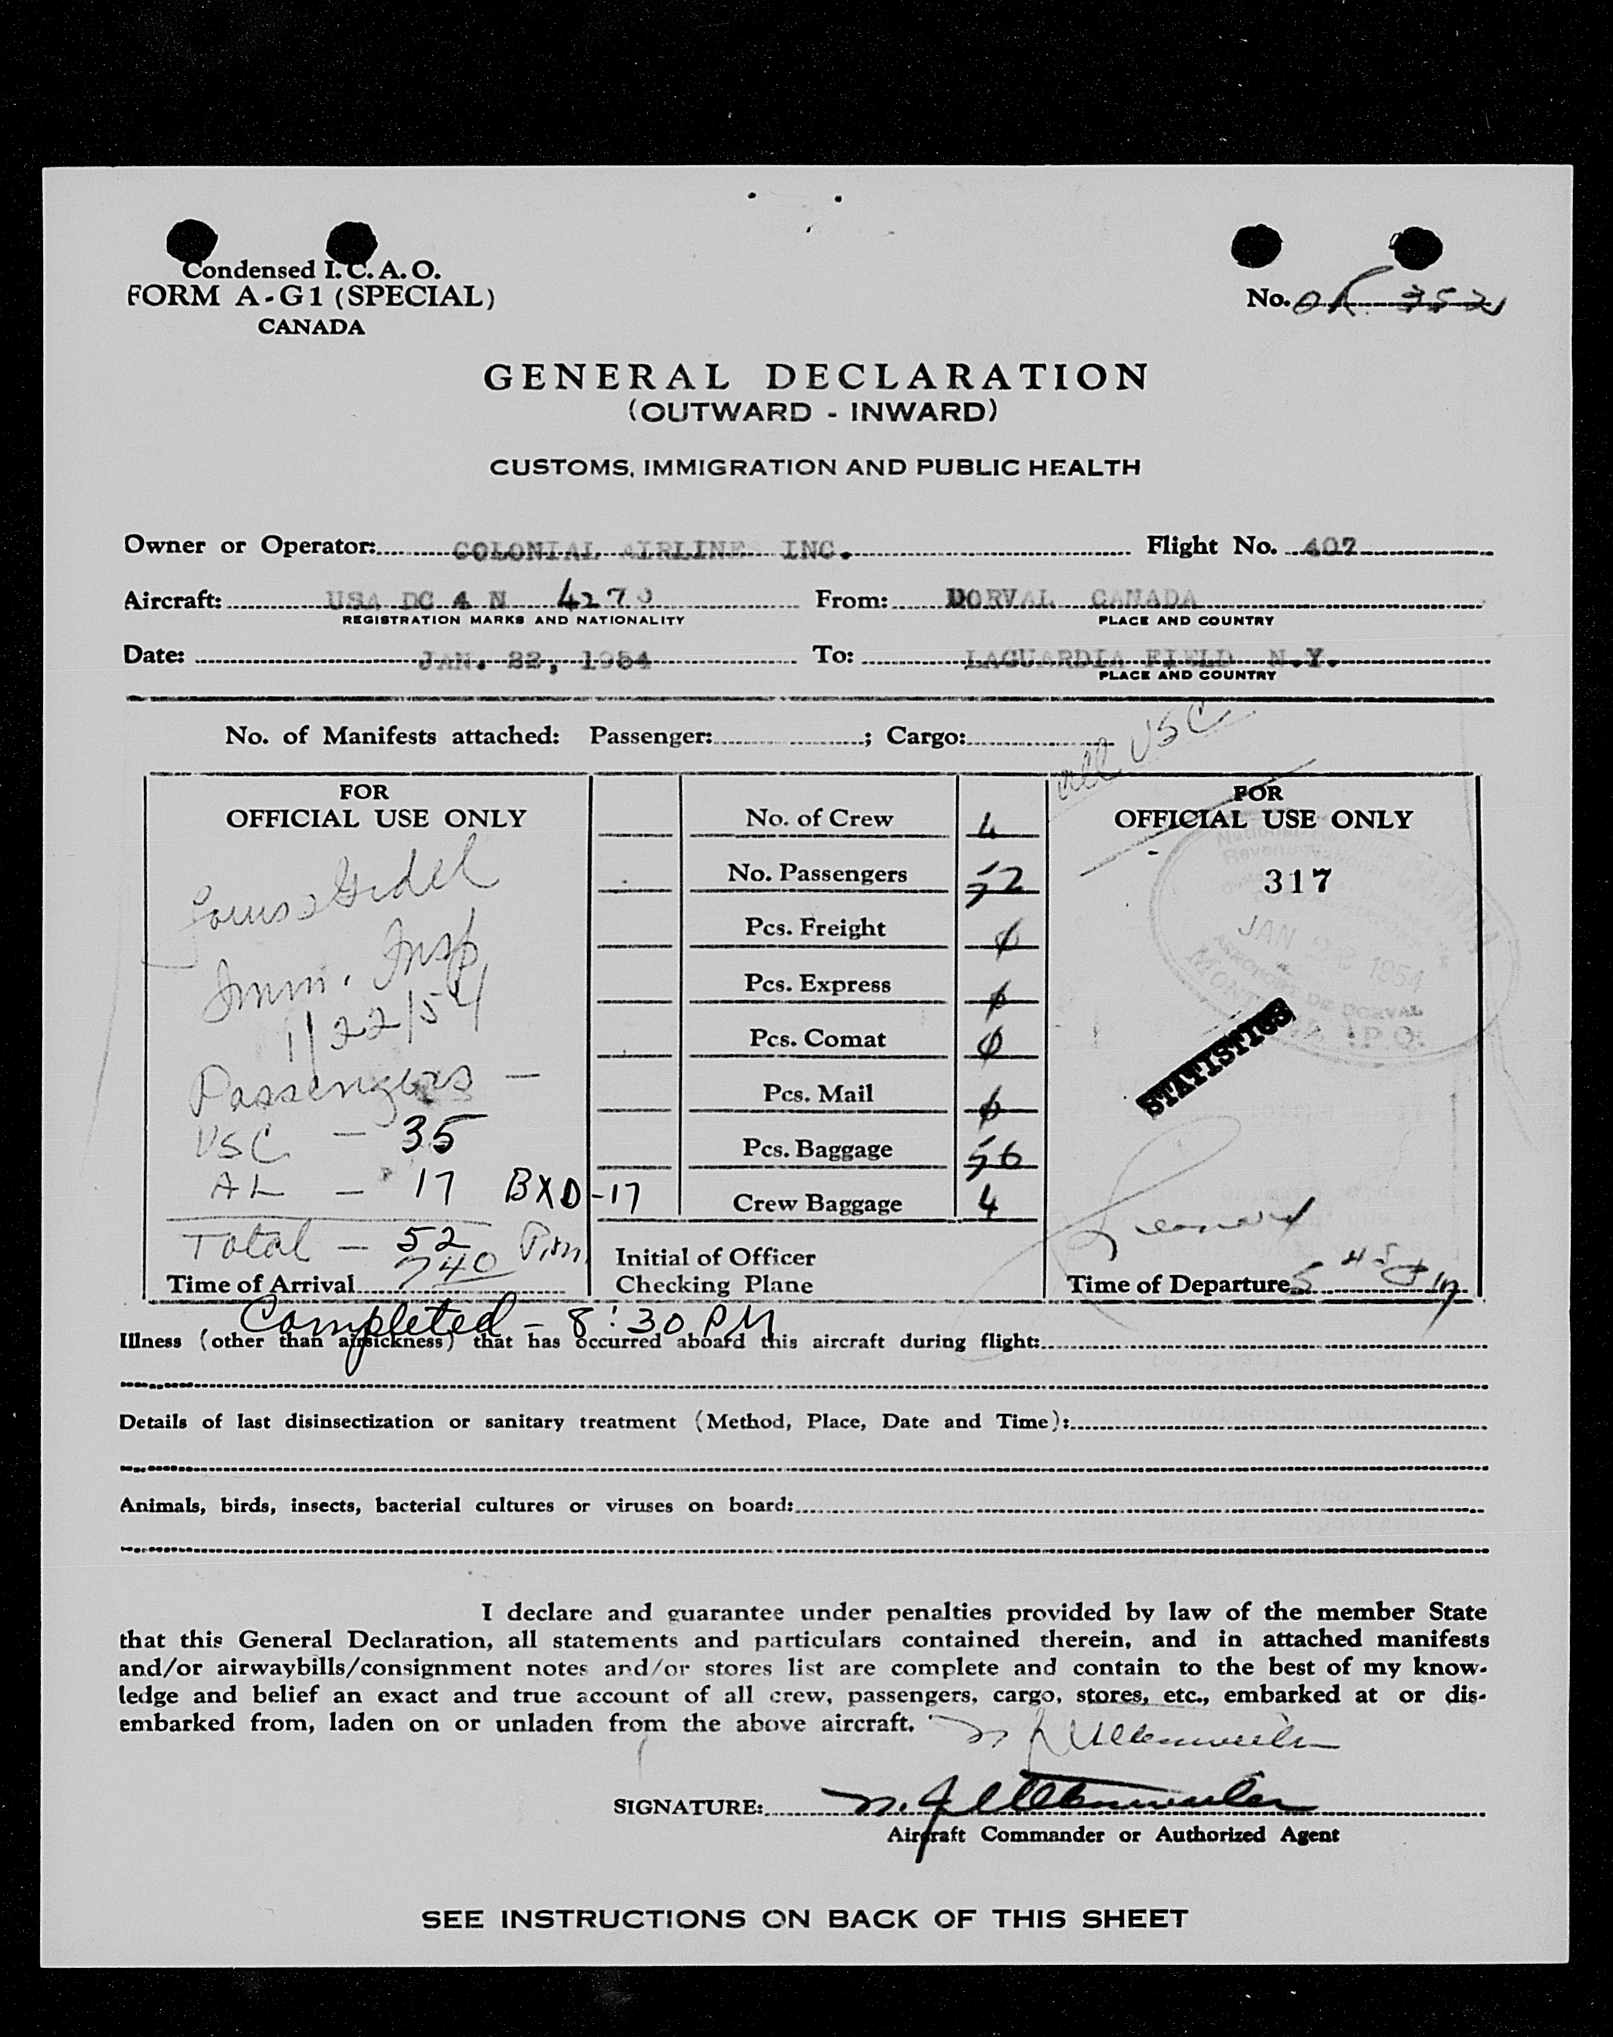 Condensed I.C.A.O.
FORM A-G1 (SPECIAL)
CANADA
No. OK 352
GENERAL DECLARATION
(OUTWARD - INWARD)
CUSTOMS, IMMIGRATION AND PUBLIC HEALTH
Owner or Operator: COLONIAL AIRLINE INC. Flight No. 407
Aircraft: USA DC 4 N 4270 From: DORVAL CANADA
REGISTRATION MARKS AND NATIONALITY PLACE AND COUNTRY
Date: JAN. 22, 1954 To: LAGUARDIA FIELD N.Y.
PLACE AND COUNTRY
No. of Manifests attached: Passenger: ; Cargo:
all USC
FOR
OFFICIAL USE ONLY
Imm. Insp
1/22/54
Passengers —
USC — 35
AL — 17 BXD -17
Total — 52
Time of Arrival 740 P.m.
No. of Crew 4
No. Passengers 52
Pcs. Freight 0
Pcs. Express 0
Pcs. Comat 0
Pcs. Mail 0
Pcs. Baggage 56
Crew Baggage 4
Initial of Officer
Checking Plane
FOR
OFFICIAL USE ONLY
317
JAN 22 1954
AEROPORT DE DORVAL
MONTREAL, P.Q.
STATISTICS
Time of Departure 5 45 pm
Completed - 8:30 PM
Illness (other than airsickness) that has occurred aboard this aircraft during flight:
Details of last disinsectization or sanitary treatment (Method, Place, Date and Time):
Animals, birds, insects, bacterial cultures or viruses on board:
I declare and guarantee under penalties provided by law of the member State
that this General Declaration, all statements and particulars contained therein, and in attached manifests
and/or airwaybills/consignment notes and/or stores list are complete and contain to the best of my know-
ledge and belief an exact and true account of all crew, passengers, cargo, stores, etc., embarked at or dis-
embarked from, laden on or unladen from the above aircraft.
SIGNATURE:
Aircraft Commander or Authorized Agent
SEE INSTRUCTIONS ON BACK OF THIS SHEET